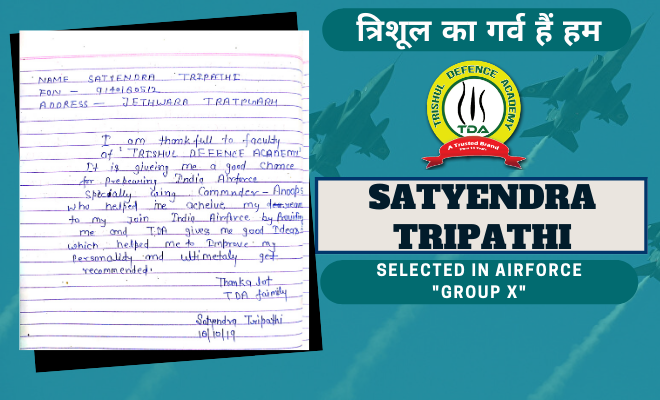 NAME SATYENDRA TRIPATHI
FON -
ADDRESS - JETHWARA
I am thankfull to faculty
of "TRISHUL DEFENCE ACADEMY"
It is giveing me a good chance
for prepearing India Airforce
Specially Wing Commander- Anoop
who helped me acheive my
to my Join India Airforce by
me and TDA gives me good Ideas
which helped me to Improve my
Personality and ultimetaly get
recommended.
Thanks lot
TDA family
Satyendra Tripathi
10/10/19
त्रिशूल का गर्व हैं हम
TRISHUL DEFENCE ACADEMY
TDA
A Trusted Brand
SATYENDRA
TRIPATHI
SELECTED IN AIRFORCE
"GROUP X"